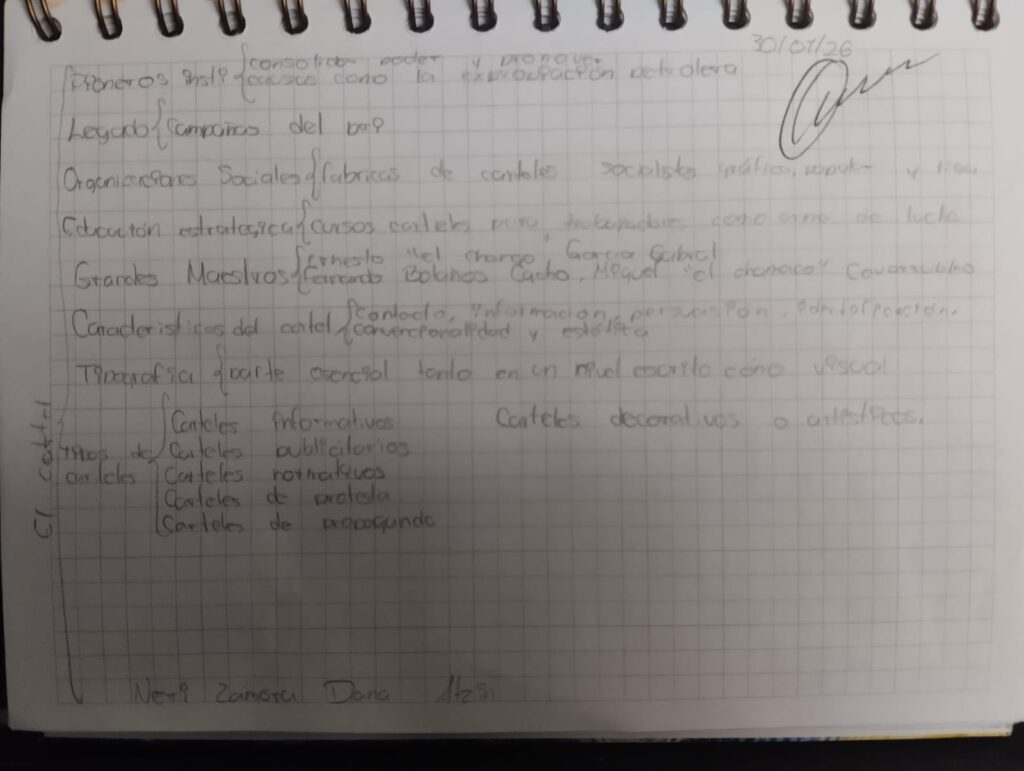 30/01/26
consolidar poder y promover
Pioneros inst? { causas como la expropiación petrolera
Legado { Campañas del pa?
Organizaciones Sociales { fabricas de carteles socialista y
Educación estrategica { cursos carteles para trabajadores como arma de lucha
Ernesto "el chango" Garcia Cabral
Grandes Maestros { Fernando Bolaños Cacho, Miguel "el chamaco" Covarrubias
Caracteristicas del cartel { contacto, informacion, persuasion, participacion,
convencionalidad y estética
Tipografia { parte esencial tanto en un nivel escrito como visual
El cartel
Tipos de carteles
Carteles informativos
Carteles publicitarios
Carteles normativos
Carteles de protesta
Carteles de propaganda
Carteles decorativos o artisticos.
Neri Zamora Dana Itzel